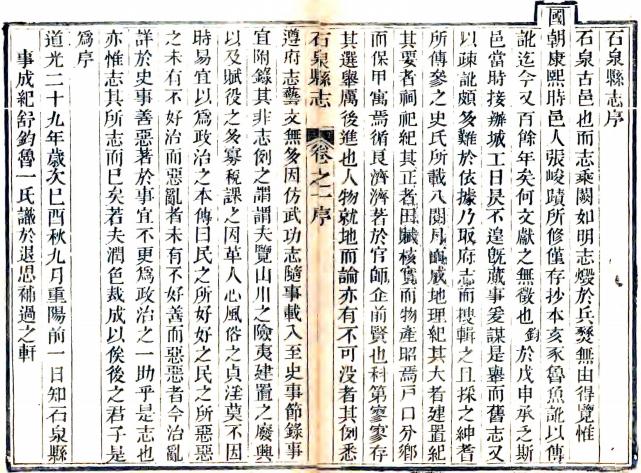 石泉縣志序
石泉古邑也而志乘闕如明志燬於兵燹無由得覽惟
國
朝康熙時邑人張峻蹟所修僅存抄本亥豕魯魚訛以傳
訛迄今又百餘年矣何文獻之無徵也鈞於戊申承乏斯
邑當時接辦城工日晷不遑旣蕆事爰謀是舉而舊志又
以疎訛頗多難於依據乃取府志而搜輯之且採之紳耆
所傳參之史氏所載八閱月
地理紀其大者建置紀
其要者祠祀紀其正者田賦核實而物產昭焉戶口分鄉
而保甲寓焉循良濟濟著於官師企前賢也科第寥寥存
其選舉厲後進也人物就地而論亦有不可没者其例悉
石泉縣志
卷之一序
遵府志藝文無多因仿武功志隨事載入至史事節錄事
宜附錄其非志例之謂謂夫覽山川之險夷建置之廢興
以及賦役之多寡稅課之因革人心風俗之貞淫莫不因
時易宜以為政治之本傳曰民之所好好之民之所惡惡
之未有不好治而惡亂者未有不好善而惡惡者今治亂
詳於史事善惡著於事宜不更為政治之一助乎是志也
亦惟志其所志而已矣若夫潤色裁成以俟後之君子是
為序
道光二十九年歲次己酉秋九月重陽前一日知石泉縣
事成紀舒鈞魯一氏識於退思補過之軒